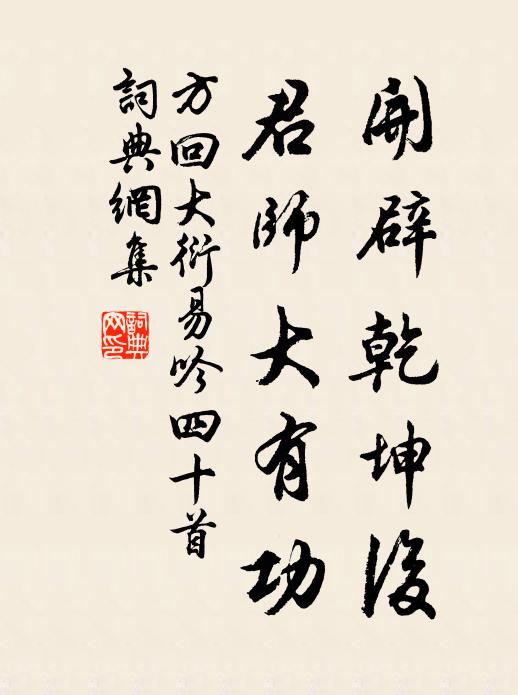 開辟乾坤後
君師大有功
方回大衍易吟四十首
詞典網集
詞典
网印